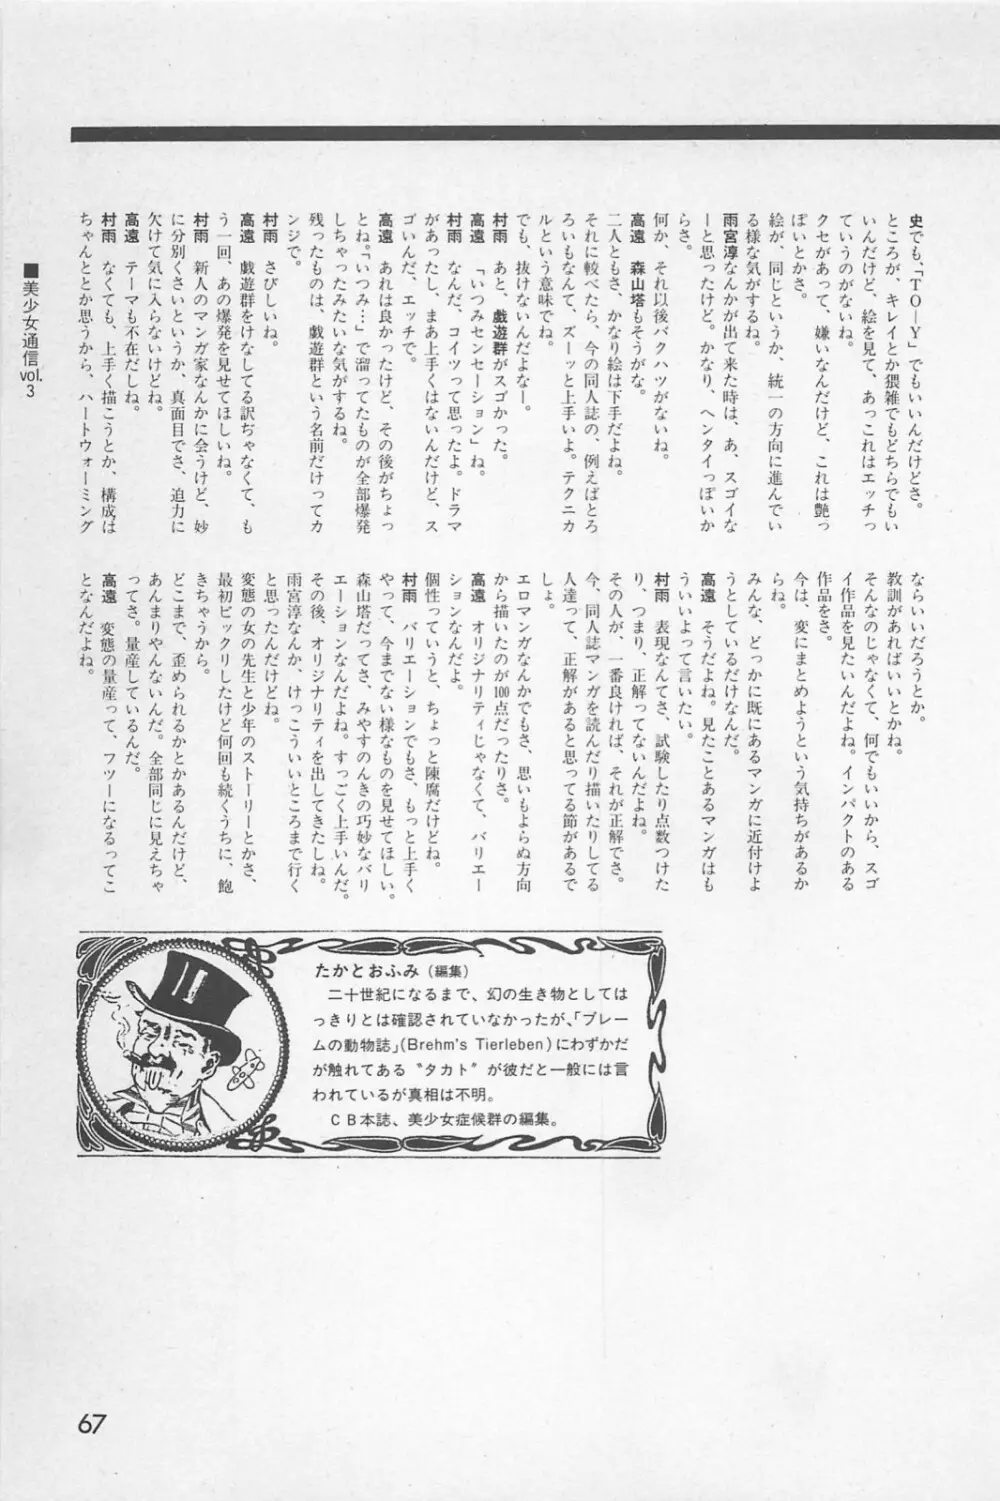 史でも、「TO—Y」でもいいんだけどさ。
ところが、キレイとか猥雑でもどちらでもい
いんだけど、絵を見て、あっこれはエッチっ
ていうのがないね。
クセがあって、嫌いなんだけど、これは艶っ
ぽいとかさ。
絵が、同じというか、統一の方向に進んでい
る様な気がするね。
雨宮淳なんかが出て来た時は、あ、スゴイな
ーと思ったけど。かなり、ヘンタイっぽいか
らさ。
何か、それ以後バクハツがないね。
高遠　森山塔もそうがな。
二人ともさ、かなり絵は下手だよね。
それに較べたら、今の同人誌の、例えばとろ
ろいもなんて、ズーッと上手いよ。テクニカ
ルという意味でね。
でも、抜けないんだよなー。
村雨　あと、戯遊群がスゴかった。
高遠　「いつみセンセーション」ね。
村雨　なんだ、コイツって思ったよ。ドラマ
があったし、まあ上手くはないんだけど、ス
ゴいんだ、エッチで。
高遠　あれは良かったけど、その後がちょっ
とね。「いつみ…」で溜ってたものが全部爆発
しちゃったみたいな気がするね。
残ったものは、戯遊群という名前だけってカ
ンジで。
村雨　さびしいね。
高遠　戯遊群をけなしてる訳ぢゃなくて、も
う一回、あの爆発を見せてほしいね。
村雨　新人のマンガ家なんかに会うけど、妙
に分別くさいというか、真面目でさ、迫力に
欠けて気に入らないけどね。
高遠　テーマも不在だしね。
村雨　なくても、上手く描こうとか、構成は
ちゃんととか思うから、ハートウォーミング
ならいいだろうとか。
教訓があればいいとかね。
そんなのじゃなくて、何でもいいから、スゴ
イ作品を見たいんだよね。インパクトのある
作品をさ。
今は、変にまとめようという気持ちがあるか
らね。
みんな、どっかに既にあるマンガに近付けよ
うとしているだけなんだ。
高遠　そうだよね。見たことあるマンガはも
ういいよって言いたい。
村雨　表現なんてさ、試験したり点数つけた
り、つまり、正解ってないんだよね。
その人が、一番良ければ、それが正解でさ。
今、同人誌マンガを読んだり描いたりしてる
人達って、正解があると思ってる節があるで
しょ。
エロマンガなんかでもさ、思いもよらぬ方向
から描いたのが100点だったりさ。
高遠　オリジナリティじゃなくて、バリエー
ションなんだよ。
個性っていうと、ちょっと陳腐だけどね。
村雨　バリエーションでもさ、もっと上手く
やって、今までない様なものを見せてほしい。
森山塔だってさ、みやすのんきの巧妙なバリ
エーションなんだよね。すっごく上手いんだ。
その後、オリジナリティを出してきたしね。
雨宮淳なんか、けっこういいところまで行く
と思ったんだけどね。
変態の女の先生と少年のストーリーとかさ、
最初ビックリしたけど何回も続くうちに、飽
きちゃうから。
どこまで、歪められるかとかあるんだけど、
あんまりやんないんだ。全部同じに見えちゃ
ってさ。量産しているんだ。
高遠　変態の量産って、フツーになるってこ
となんだよね。
■美少女通信vol.3
たかとおふみ（編集）
　二十世紀になるまで、幻の生き物としては
っきりとは確認されていなかったが、「ブレー
ムの動物誌」(Brehm's Tierleben)にわずかだ
が触れてある〝タカト〟が彼だと一般には言
われているが真相は不明。
　ＣＢ本誌、美少女症候群の編集。
67